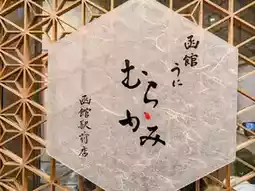 函館
うに
むらかみ
函館駅前店